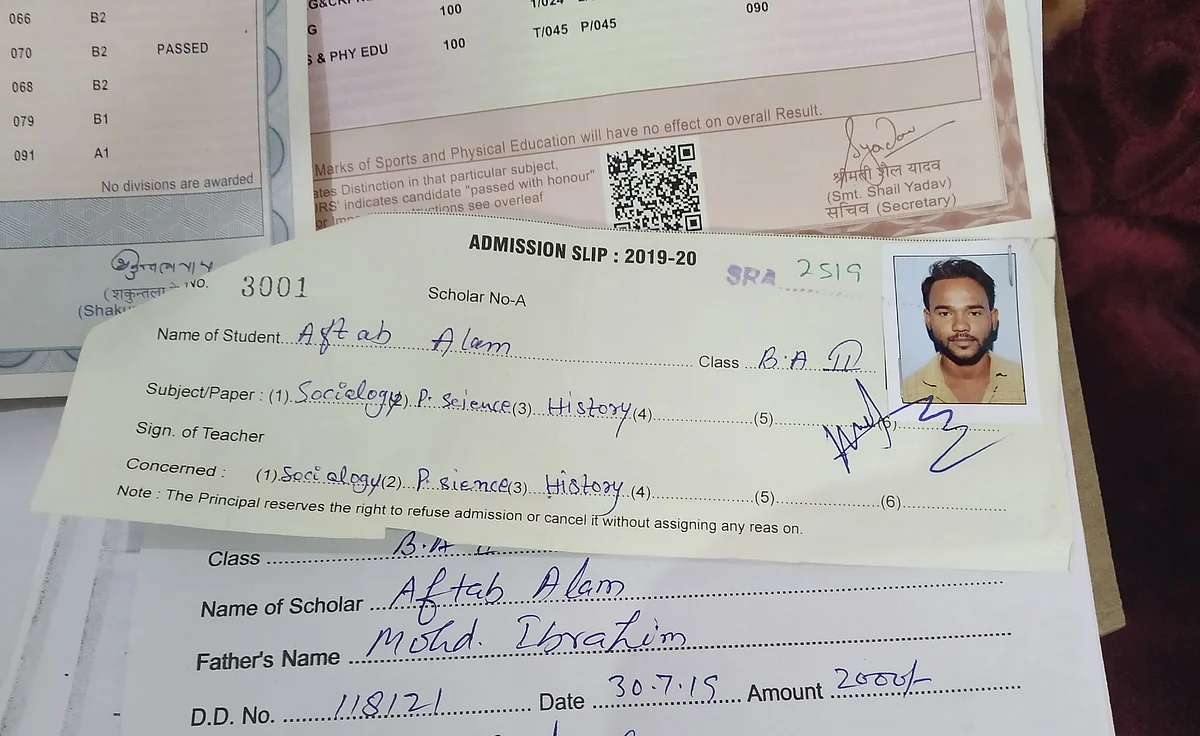 066 B2
070 B2 PASSED
068 B2
079 B1
091 A1
No divisions are awarded
100
G
S & PHY EDU 100 T/045 P/045 090
Marks of Sports and Physical Education will have no effect on overall Result.
ates Distinction in that particular subject,
RS' indicates candidate "passed with honour"
ctions see overleaf
श्रीमती शैल यादव
(Smt. Shail Yadav)
सचिव (Secretary)
(शकुन्तला
(Shaku
ADMISSION SLIP : 2019-20
NO. 3001 Scholar No-A SRA 2519
Name of Student Aftab Alam Class B.A II
Subject/Paper : (1) Sociology (2) P. science (3) History (4) (5) (6)
Sign. of Teacher
Concerned : (1) Sociology (2) P. sience (3) History (4) (5) (6)
Note : The Principal reserves the right to refuse admission or cancel it without assigning any reas on.
Class B.A II
Name of Scholar Aftab Alam
Father's Name Mohd. Ibrahim
D.D. No. 118121 Date 30.7.19 Amount 2000/-